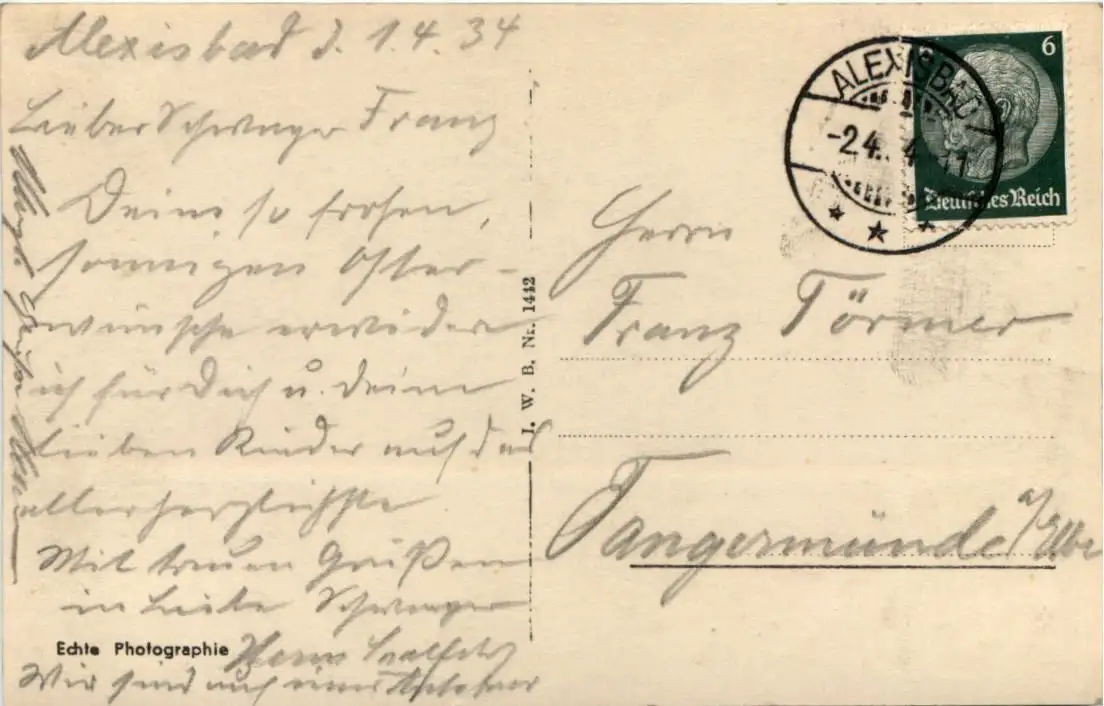 Alexisbad d. 1.4.34
Lieber Schwager Franz
Deine so frohen,
sonnigen Oster-
wünsche erwidere
ich für Dich u. Deine
lieben Kinder auf das
allerherzlichste
Mit treuen Grüßen
in Liebe Schwager
Wir sind auf einer
Echte Photographie
J. W. B. Nr. 1442
ALEXISBAD
-2.4. 11
6
Deutsches Reich
Herrn
Franz Törmer
Tangermünde a/Elbe